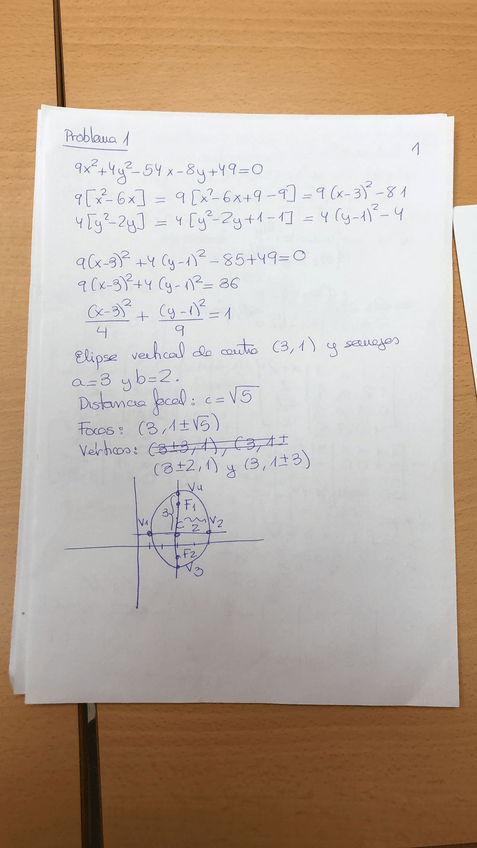 Problema 1
1
9x²+4y²-54x-8y+49=0
9[x²-6x] = 9[x²-6x+9-9] = 9(x-3)²-81
4[y²-2y] = 4[y²-2y+1-1] = 4(y-1)²-4
9(x-3)²+4(y-1)²-85+49=0
9(x-3)²+4(y-1)²=36
(x-3)²/4 + (y-1)²/9 = 1
Elipse vertical de centro (3,1) y semiejes
a=3 y b=2.
Distancia focal: c=√5
Focos: (3,1±√5)
Vértices: (3±3,1), (3,1±
(3±2,1) y (3,1±3)
V4
F1
3
V1
C
2
V2
F2
V3